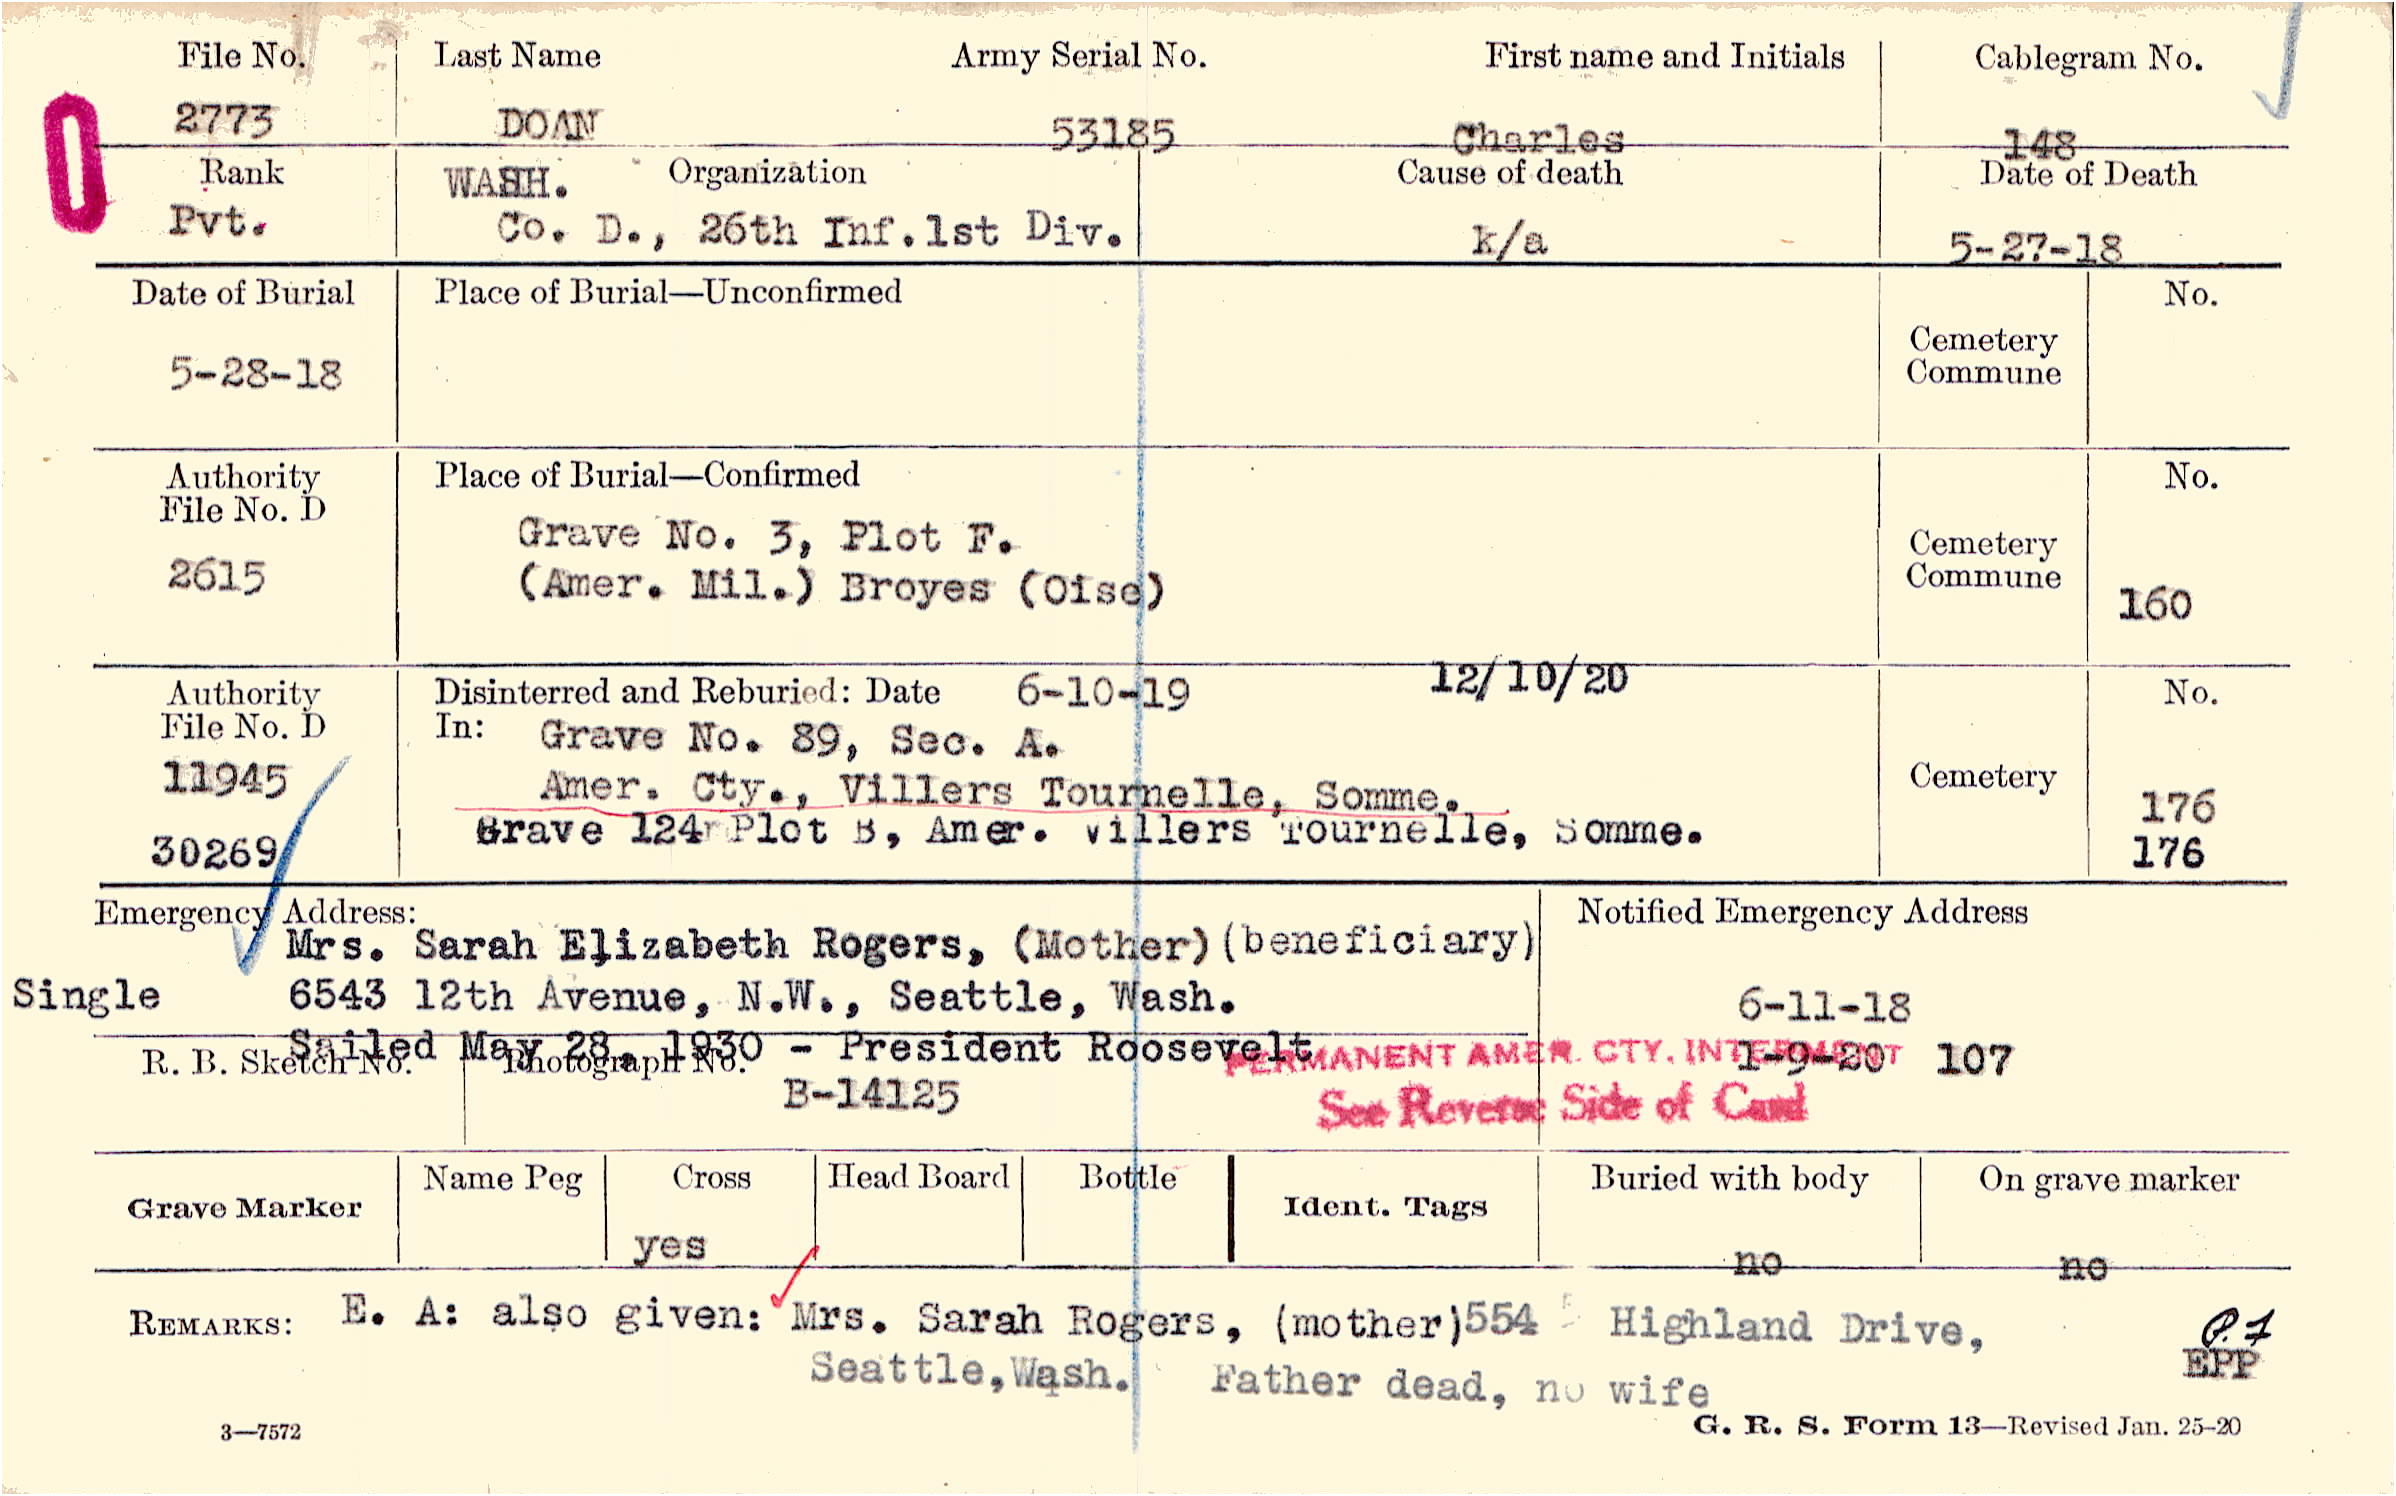 File No. Last Name Army Serial No. First name and Initials Cablegram No.
2773 DOAN 53185 Charles 148
Rank WASH. Organization Cause of death Date of Death
Pvt. Co. D., 26th Inf.1st Div. k/a 5-27-18
Date of Burial Place of Burial—Unconfirmed No.
Cemetery
Commune
5-28-18
Authority Place of Burial—Confirmed No.
File No. D
Grave No. 3, Plot F.
Cemetery
Commune
2615 (Amer. Mil.) Broyes (Oise) 160
Authority Disinterred and Reburied: Date 6-10-19 12/10/20 No.
File No. D In: Grave No. 89, Sec. A.
11945 Amer. Cty., Villers Tournelle, Somme. Cemetery 176
30269 Grave 124 Plot B, Amer. Villers Tournelle, Somme. 176
Emergency Address: Notified Emergency Address
Mrs. Sarah Elizabeth Rogers, (Mother) (beneficiary)
Single 6543 12th Avenue, N.W., Seattle, Wash. 6-11-18
Sailed May 28, 1930 - President Roosevelt
R. B. Sketch No. Photograph No. PERMANENT AMER. CTY. INTERMENT 1-9-20 107
B-14125 See Reverse Side of Card
Grave Marker Name Peg Cross Head Board Bottle Ident. Tags Buried with body On grave marker
yes no no
REMARKS: E. A: also given: Mrs. Sarah Rogers, (mother)554 Highland Drive,
Seattle,Wash. Father dead, no wife
P.1
EPP
3—7572 G. R. S. Form 13—Revised Jan. 25-20